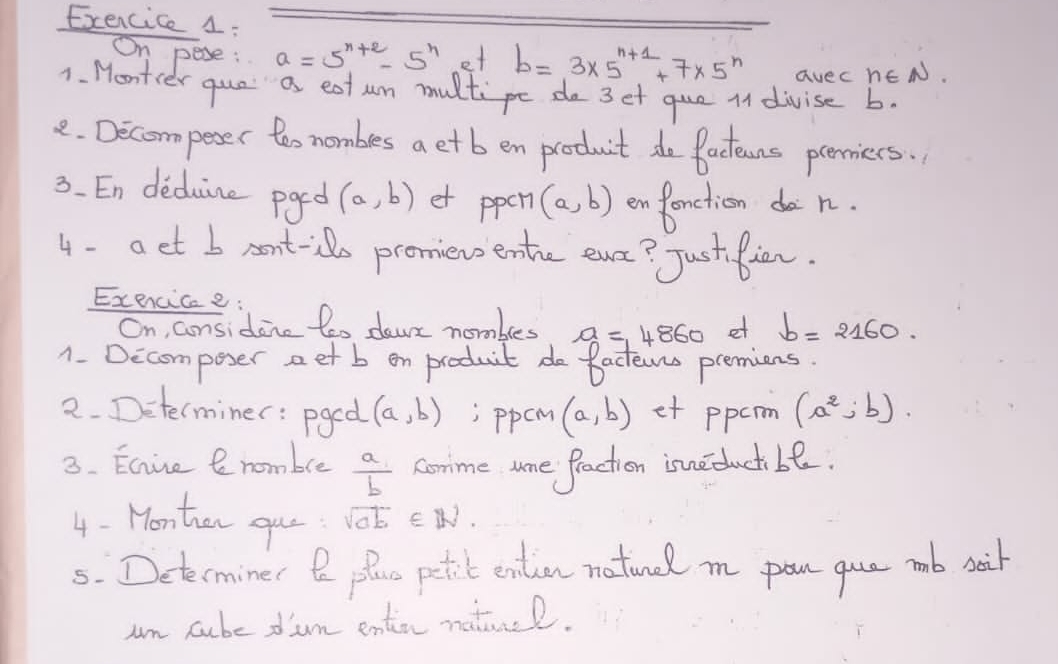 Exercice 1:
On pose: a = 5^{n+2} - 5^n et b = 3×5^{n+1} + 7×5^n avec n∈ℕ.
1- Montrer que a est un multipe de 3 et que 11 divise b.
2- Décomposer les nombres a et b en produit de facteurs premiers.
3- En déduire pgcd(a,b) et ppcm(a,b) en fonction de n.
4- a et b sont-ils premiers entre eux? Justifier.
Exercice 2:
On considère les deux nombres a = 4860 et b = 2160.
1- Décomposer a et b en produit de facteurs premiers.
2- Déterminer: pgcd(a,b) ; ppcm(a,b) et ppcm(a²;b).
3- Écrire le nombre a/b comme une fraction irréductible.
4- Montrer que: √ab ∈ ℕ.
5- Déterminer le plus petit entier naturel m pour que mb soit
un cube d'un entier naturel.